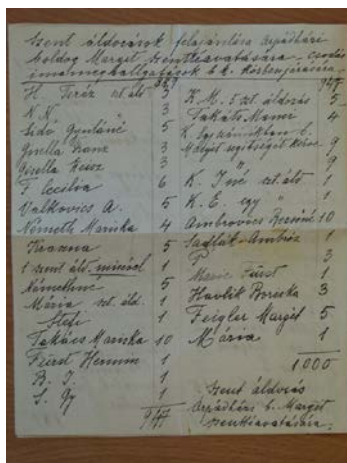 Szent áldozások felajánlása Árpádházi
boldog Margit szentéavatására - csodás
imameghallgatások b. k. közbenjárására.
H. Teréz szt. áld
N. N. 3
Sidó Gyuláné 5
Gisella Franz 3
Gisella 3
F Cecilia 6
Valkovics A. 5
Németh Mariska 4
Krazna 5
1 szent áld. 1
Némethné 5
Mária szt. áld. 1
Stefi 1
Takács Mariska 10
Fürst Hermin 1
B. J. 1
S. Gy 1
947
947
K. M. 5 szt. áldozás 5
Takáts Manci 4
K. b.
Margit segítségét kérve 9
" 9
K. Jné szt. áld 1
K. E. egy " 1
Ambrovics Rezsőné 10
Sadlák Ambróz 1
P 3
Marie Fürst 1
Havlik Boriska 3
Feigler Margit 5
Mária 1
1000
Szent áldozás
Árpádházi b. Margit
szentéavatására.